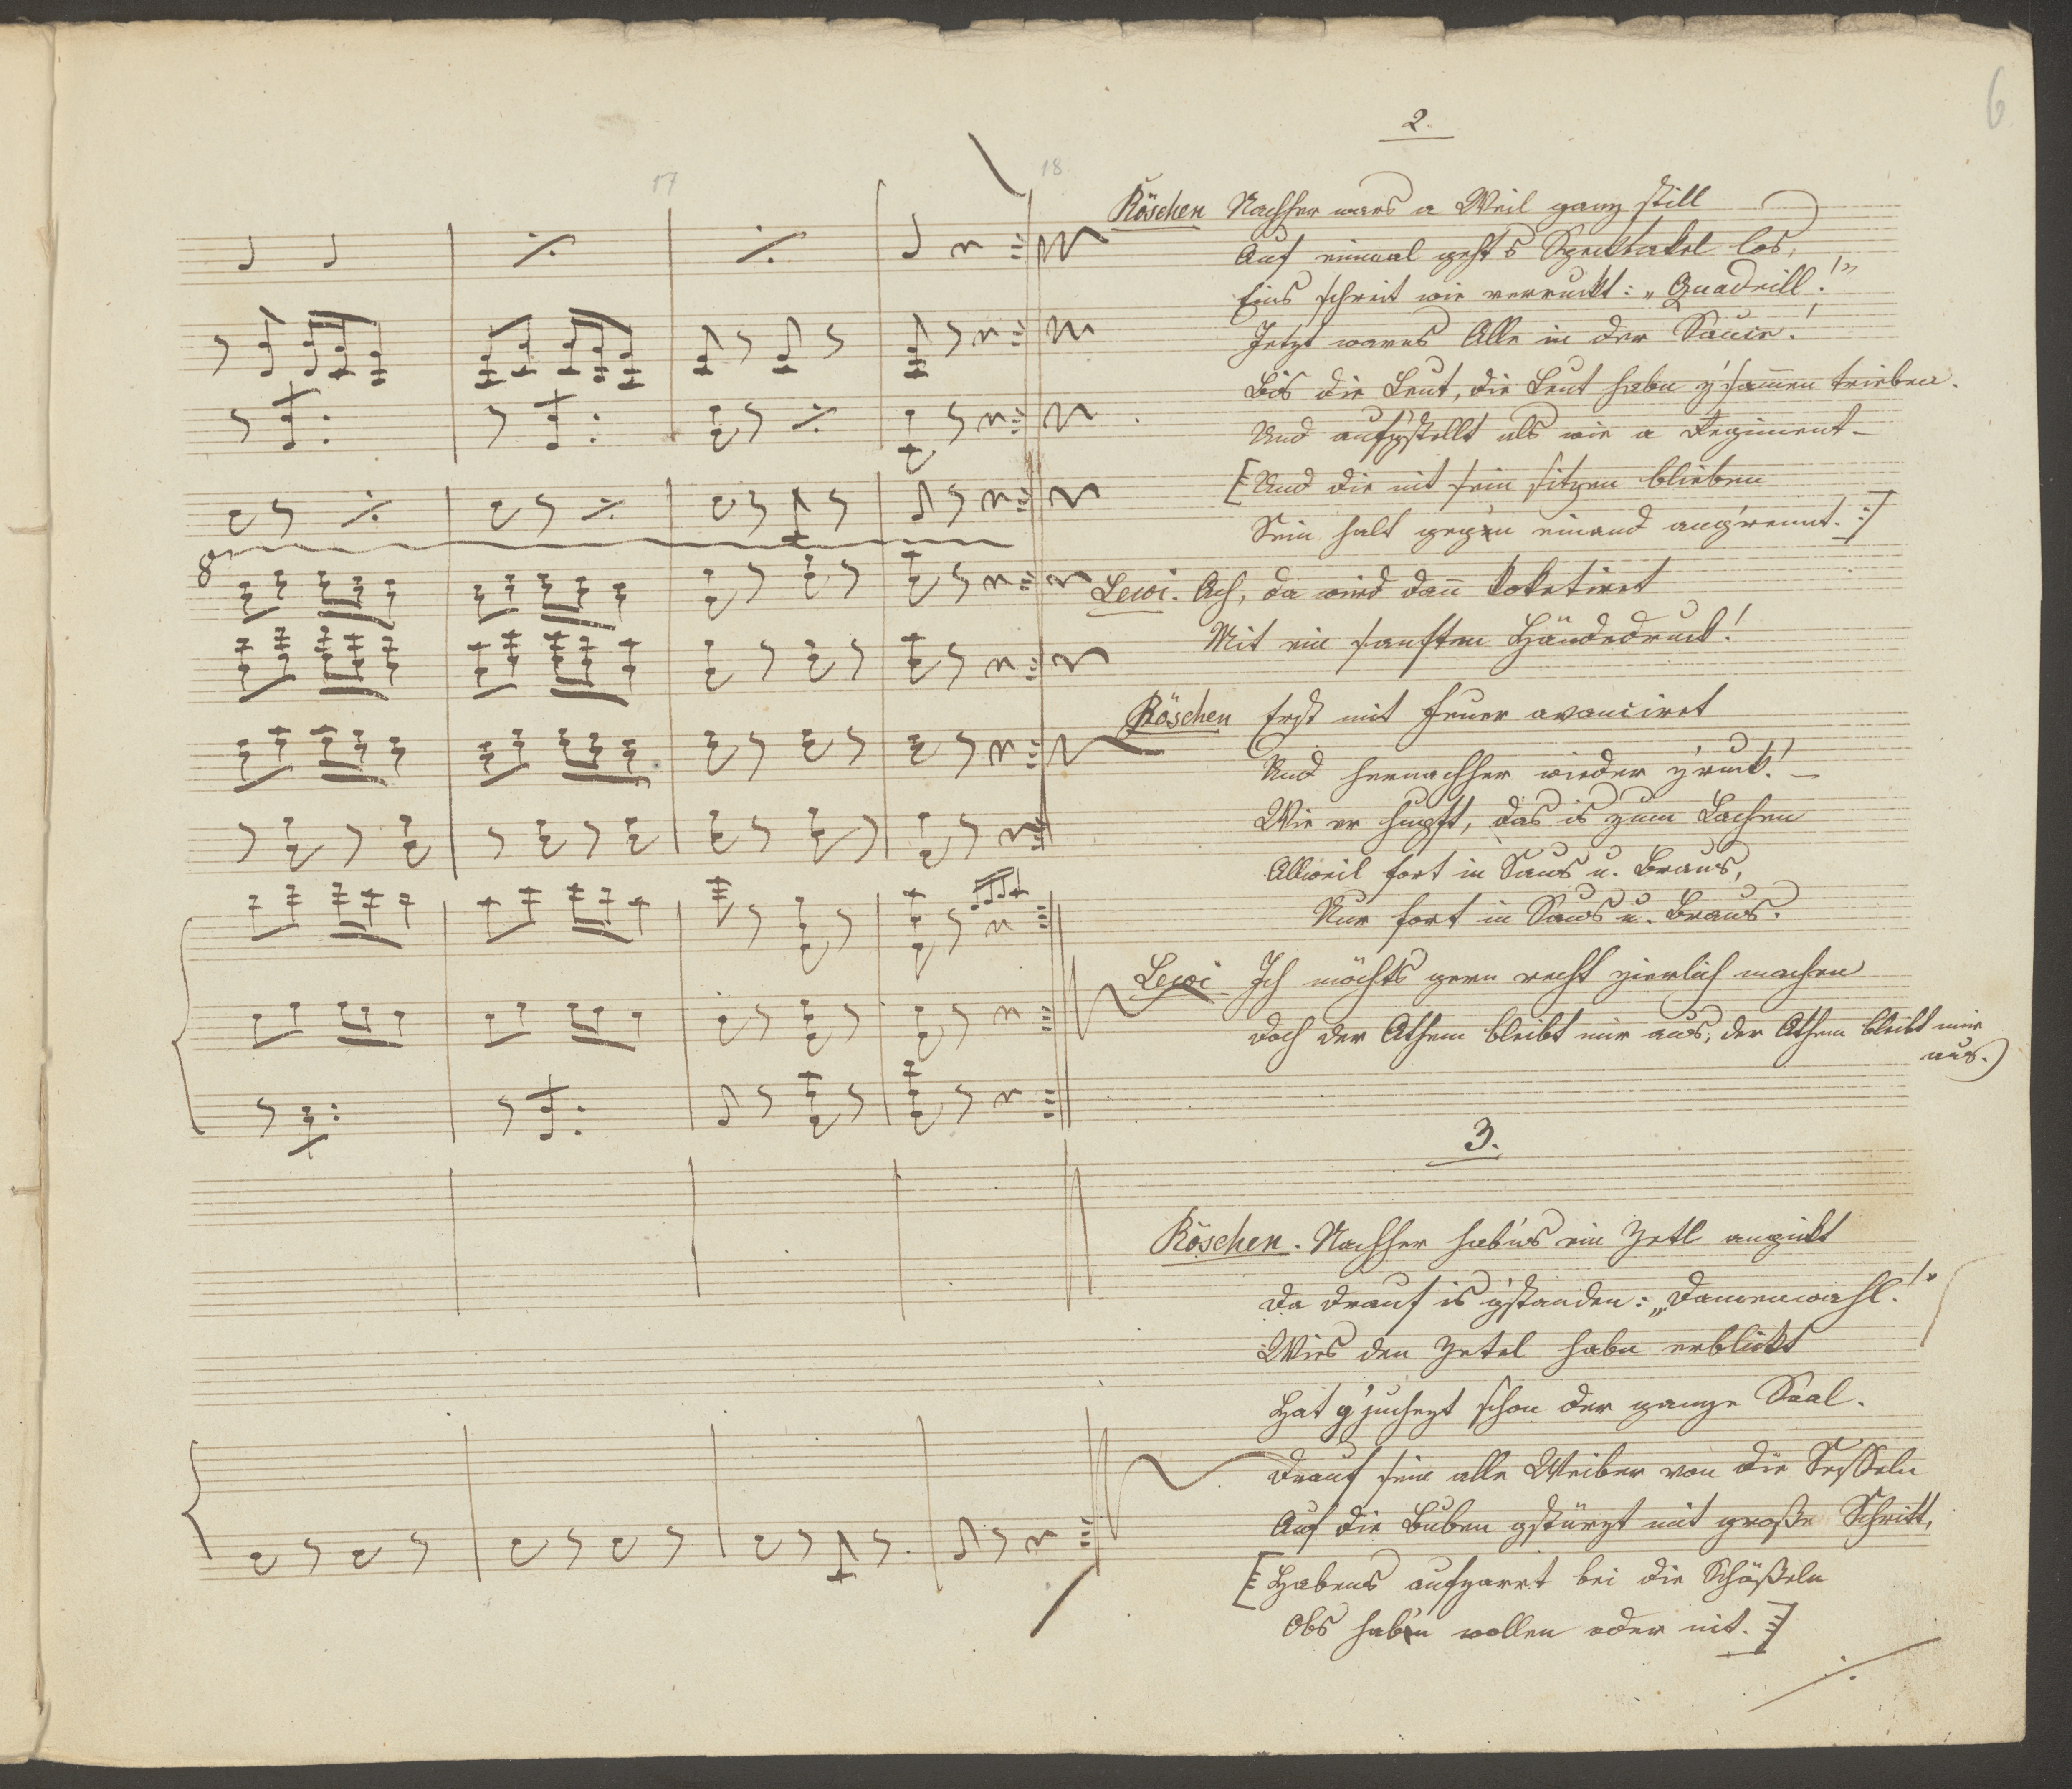 6
2.
17
18
Röschen Nachher wars a Weil ganz still
Auf einmal geht's Specktakel los,
Eins schreit wie verruckt: „Quadrill!"
Jetzt warns Alle in der Sauce!
Bis die Leut, die Leut habn z'samen trieben.
Und aufg'stellt als wie a Regiment –
[Und die nit sein sitzen blieben
Sein halt gegen einand ang'rennt. :]
Lewi. Ach, da wird dan koketiret
Mit ein sanften Händedruck!
Röschen Erst mit Feuer avanciret
Und hernachher wieder z'ruck! –
Wie er hupft, das is zum Lachen
Allweil fort in Saus u. Braus,
Nur fort in Saus u. Braus.
Lewi Ich möchts gern recht zierlich machen
Doch der Athem bleibt mir aus, der Athem bleibt mir
aus.)
8
3.
Röschen. Nachher hab'ns ein Zetl
Da drauf is g'standen: „Damenwahl!"
Wies den Zetel habn erblickt
Hat g'juchezt schon der ganze Saal.
Drauf sein alle Weiber von die Sesseln
Auf die Buben gstürzt mit große Schritt,
[Habens bei die Schößeln
Obs hab'n wollen oder nit. :]